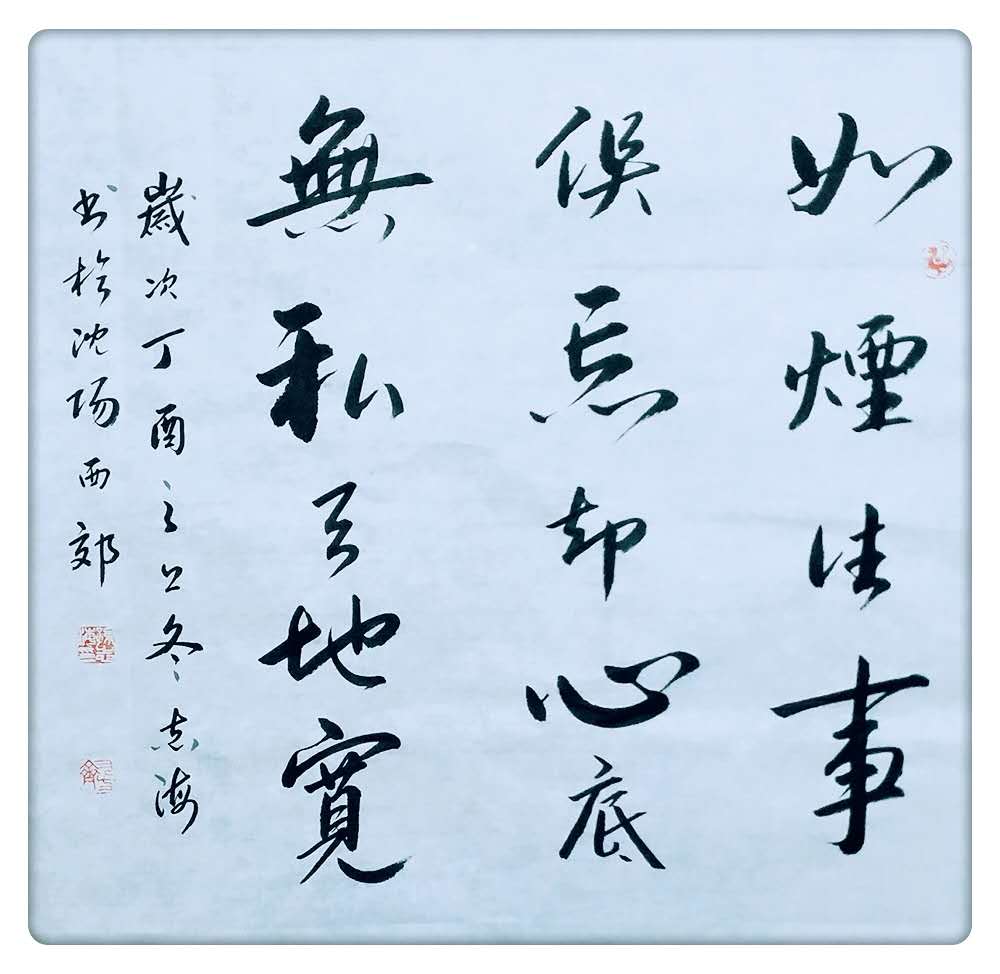 如煙往事
俱忘却心底
無私天地寬
歲次丁酉之冬志海
书於沈陽西郊